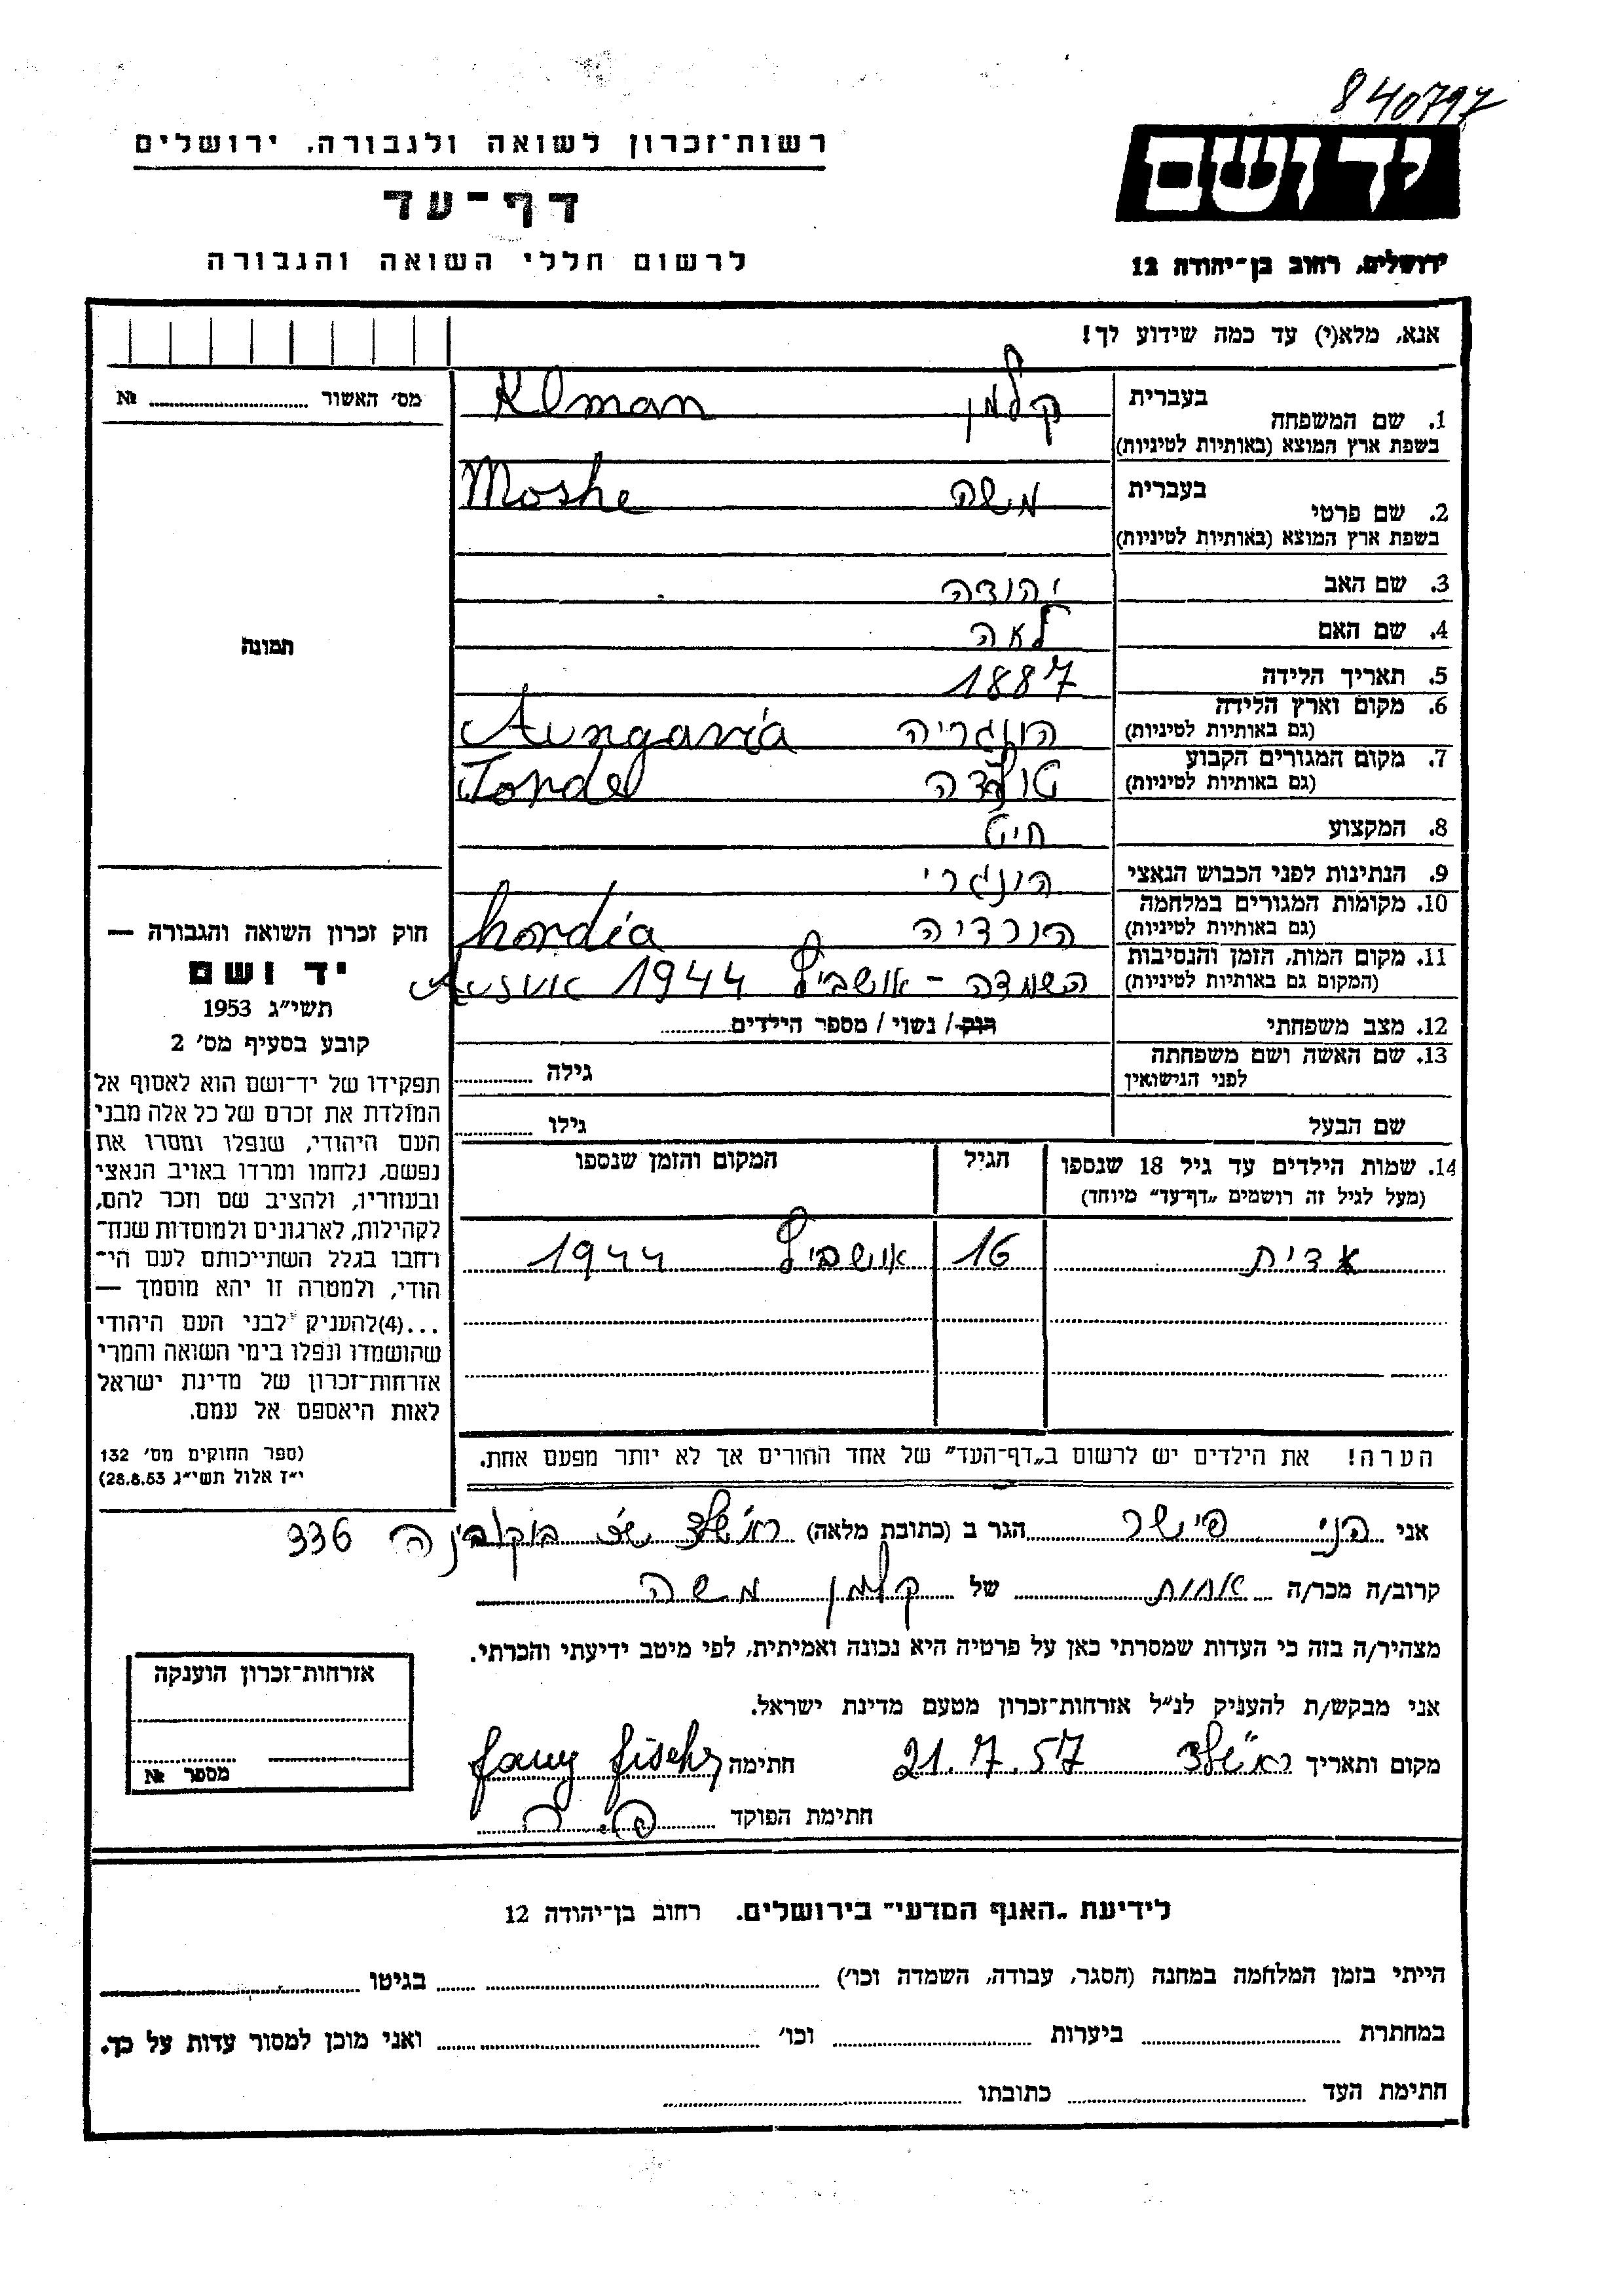 840797
רשות־זכרון לשואה ולגבורה, ירושלים
דף־עד
לרשום חללי השואה והגבורה
ידושם
ירושלים, רחוב בן־יהודה 12
אנא, מלא(י) עד כמה שידוע לך!
מס׳ האשור № 
1. שם המשפחה בעברית קלמן Klman
בשפת ארץ המוצא (באותיות לטיניות)
2. שם פרטי בעברית משה Moshe
בשפת ארץ המוצא (באותיות לטיניות)
3. שם האב יהודה
4. שם האם לאה
5. תאריך הלידה 1887
6. מקום וארץ הלידה הונגריה
(גם באותיות לטיניות)
7. מקום המגורים הקבוע
(גם באותיות לטיניות)
8. המקצוע חיט
9. הנתינות לפני הכבוש הנאצי הונגרי
10. מקומות המגורים במלחמה הורדיה hordia
(גם באותיות לטיניות)
11. מקום המות, הזמן והנסיבות השמדה - אושביץ 1944
(המקום גם באותיות לטיניות)
12. מצב משפחתי רוק/ נשוי / מספר הילדים
13. שם האשה ושם משפחתה גילה
לפני הנישואין
שם הבעל גילו
14. שמות הילדים עד גיל 18 שנספו הגיל המקום והזמן שנספו
(מעל לגיל זה רושמים „דף־עד״ מיוחד)
אדית 16 אושביץ 1944
הערה! את הילדים יש לרשום ב„דף־העד״ של אחד ההורים אך לא יותר מפעם אחת.
תמונה
חוק זכרון השואה והגבורה —
יד ושם
תשי״ג 1953
קובע בסעיף מס׳ 2
תפקידו של יד־ושם הוא לאסוף אל
המולדת את זכרם של כל אלה מבני
העם היהודי, שנפלו ומסרו את
נפשם, נלחמו ומרדו באויב הנאצי
ובעוזריו, ולהציב שם וזכר להם,
לקהילות, לארגונים ולמוסדות שנח־
רחבו בגלל השתייכותם לעם הי־
הודי, ולמטרה זו יהא מוסמך —
...(4)להעניק לבני העם היהודי
שהושמדו ונפלו בימי השואה והמרי
אזרחות־זכרון של מדינת ישראל
לאות היאספם אל עמם.
(ספר החוקים מס׳ 132
י״ז אלול תשי״ג 28.8.53)
אני הני פישר הגר ב (כתובת מלאה) ראשלצ 336
קרוב/ה מכר/ה אחות של קלמן משה
מצהיר/ה בזה כי העדות שמסרתי כאן על פרטיה היא נכונה ואמיתית, לפי מיטב ידיעתי והכרתי.
אני מבקש/ת להעניק לנ״ל אזרחות־זכרון מטעם מדינת ישראל.
מקום ותאריך ראשלצ 21.7.57 חתימה
חתימת הפוקד
אזרחות־זכרון הוענקה
מספר №
לידיעת „האגף המדעי״ בירושלים. רחוב בן־יהודה 12
הייתי בזמן המלחמה במחנה (הסגר, עבודה, השמדה וכו׳) בגיטו
במחתרת ביערות וכו׳ ואני מוכן למסור עדות על כך.
חתימת העד כתובתו